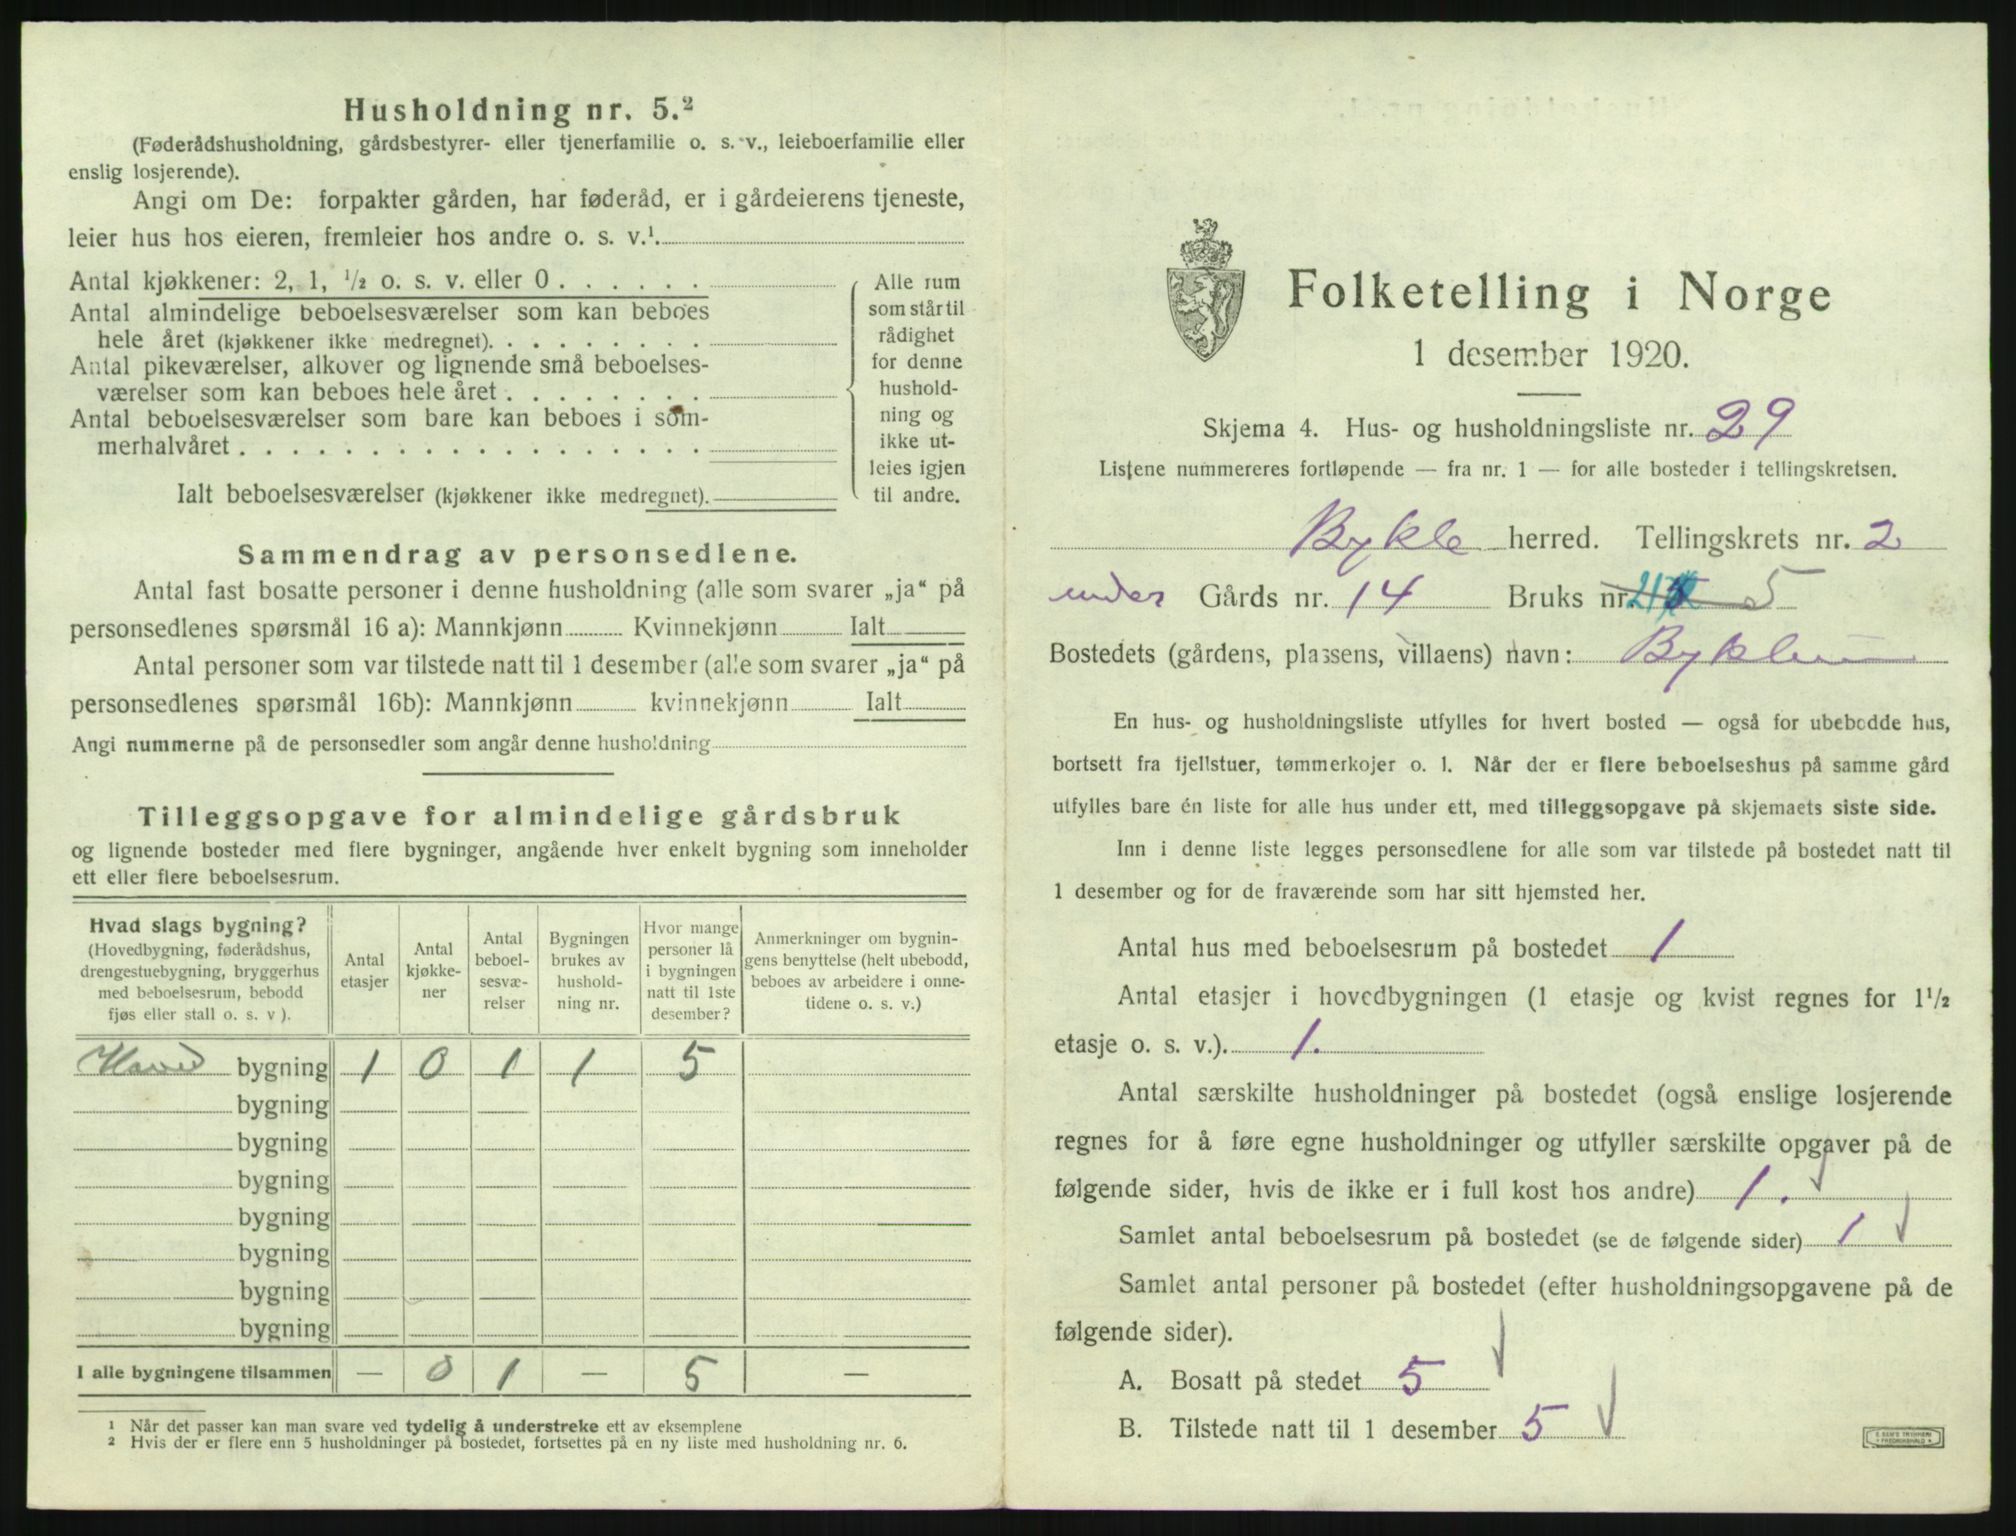 Husholdning nr. 5.²
(Føderådshusholdning, gårdsbestyrer- eller tjenerfamilie o. s. v., leieboerfamilie eller
enslig losjerende).
Angi om De: forpakter gården, har føderåd, er i gårdeierens tjeneste,
leier hus hos eieren, fremleier hos andre o. s. v.¹.
Antal kjøkkener: 2, 1, ½ o. s. v. eller 0 . . . . . .
Antal almindelige beboelsesværelser som kan beboes
hele året (kjøkkener ikke medregnet). . . . . . . . .
Antal pikeværelser, alkover og lignende små beboelses-
værelser som kan beboes hele året . . . . . . . .
Antal beboelsesværelser som bare kan beboes i som-
merhalvåret . . . . . . . . . . . . . . . . . .
Ialt beboelsesværelser (kjøkkener ikke medregnet).
Alle rum
som står til
rådighet
for denne
hushold-
ning og
ikke ut-
leies igjen
til andre.
Sammendrag av personsedlene.
Antal fast bosatte personer i denne husholdning (alle som svarer „ja“ på
personsedlenes spørsmål 16 a): Mannkjønn Kvinnekjønn Ialt
Antal personer som var tilstede natt til 1 desember (alle som svarer „ja“ på
personsedlenes spørsmål 16b): Mannkjønn kvinnekjønn Ialt
Angi nummerne på de personsedler som angår denne husholdning
Tilleggsopgave for almindelige gårdsbruk
og lignende bosteder med flere bygninger, angående hver enkelt bygning som inneholder
ett eller flere beboelsesrum.
Hvad slags bygning?
(Hovedbygning, føderådshus,
drengestuebygning, bryggerhus
med beboelsesrum, bebodd
fjøs eller stall o. s. v ).
Antal
etasjer
Antal
kjøkke-
ner
Antal
beboel-
sesvæ-
relser
Bygningen
brukes av
hushold-
ning nr.
Hvor mange
personer lå
i bygningen
natt til 1ste
desember?
Anmerkninger om bygnin-
gens benyttelse (helt ubebodd,
beboes av arbeidere i onne-
tidene o. s. v.)
Hoved bygning 1 0 1 1 5
bygning
bygning
bygning
bygning
bygning
bygning
bygning
I alle bygningene tilsammen — 0 1 — 5 —
¹ Når det passer kan man svare ved tydelig å understreke ett av eksemplene
² Hvis der er flere enn 5 husholdninger på bostedet, fortsettes på en ny liste med husholdning nr. 6.
Folketelling i Norge
1 desember 1920.
Skjema 4. Hus- og husholdningsliste nr. 29
Listene nummereres fortløpende — fra nr. 1 — for alle bosteder i tellingskretsen.
Bykle herred. Tellingskrets nr. 2
under Gårds nr. 14 Bruks nr. 5
Bostedets (gårdens, plassens, villaens) navn:
En hus- og husholdningsliste utfylles for hvert bosted — også for ubebodde hus,
bortsett fra fjellstuer, tømmerkojer o. l. Når der er flere beboelseshus på samme gård
utfylles bare én liste for alle hus under ett, med tilleggsopgave på skjemaets siste side.
Inn i denne liste legges personsedlene for alle som var tilstede på bostedet natt til
1 desember og for de fraværende som har sitt hjemsted her.
Antal hus med beboelsesrum på bostedet 1
Antal etasjer i hovedbygningen (1 etasje og kvist regnes for 1½
etasje o. s. v.). 1.
Antal særskilte husholdninger på bostedet (også enslige losjerende
regnes for å føre egne husholdninger og utfyller særskilte opgaver på de
følgende sider, hvis de ikke er i full kost hos andre) 1.
Samlet antal beboelsesrum på bostedet (se de følgende sider) 1
Samlet antal personer på bostedet (efter husholdningsopgavene på de
følgende sider).
A. Bosatt på stedet 5
B. Tilstede natt til 1 desember 5